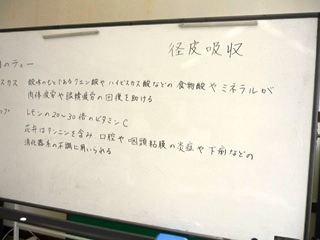 経皮吸収
のティー
スカス 酸味のもとであるクエン酸やハイビスカス酸などの食物酸やミネラルが
肉体疲労や眼精疲労の回復を助ける
ップ レモンの20〜30倍のビタミンC
花弁はタンニンを含み 口腔や咽頭粘膜の炎症や下痢などの
消化器系の不調に用いられる